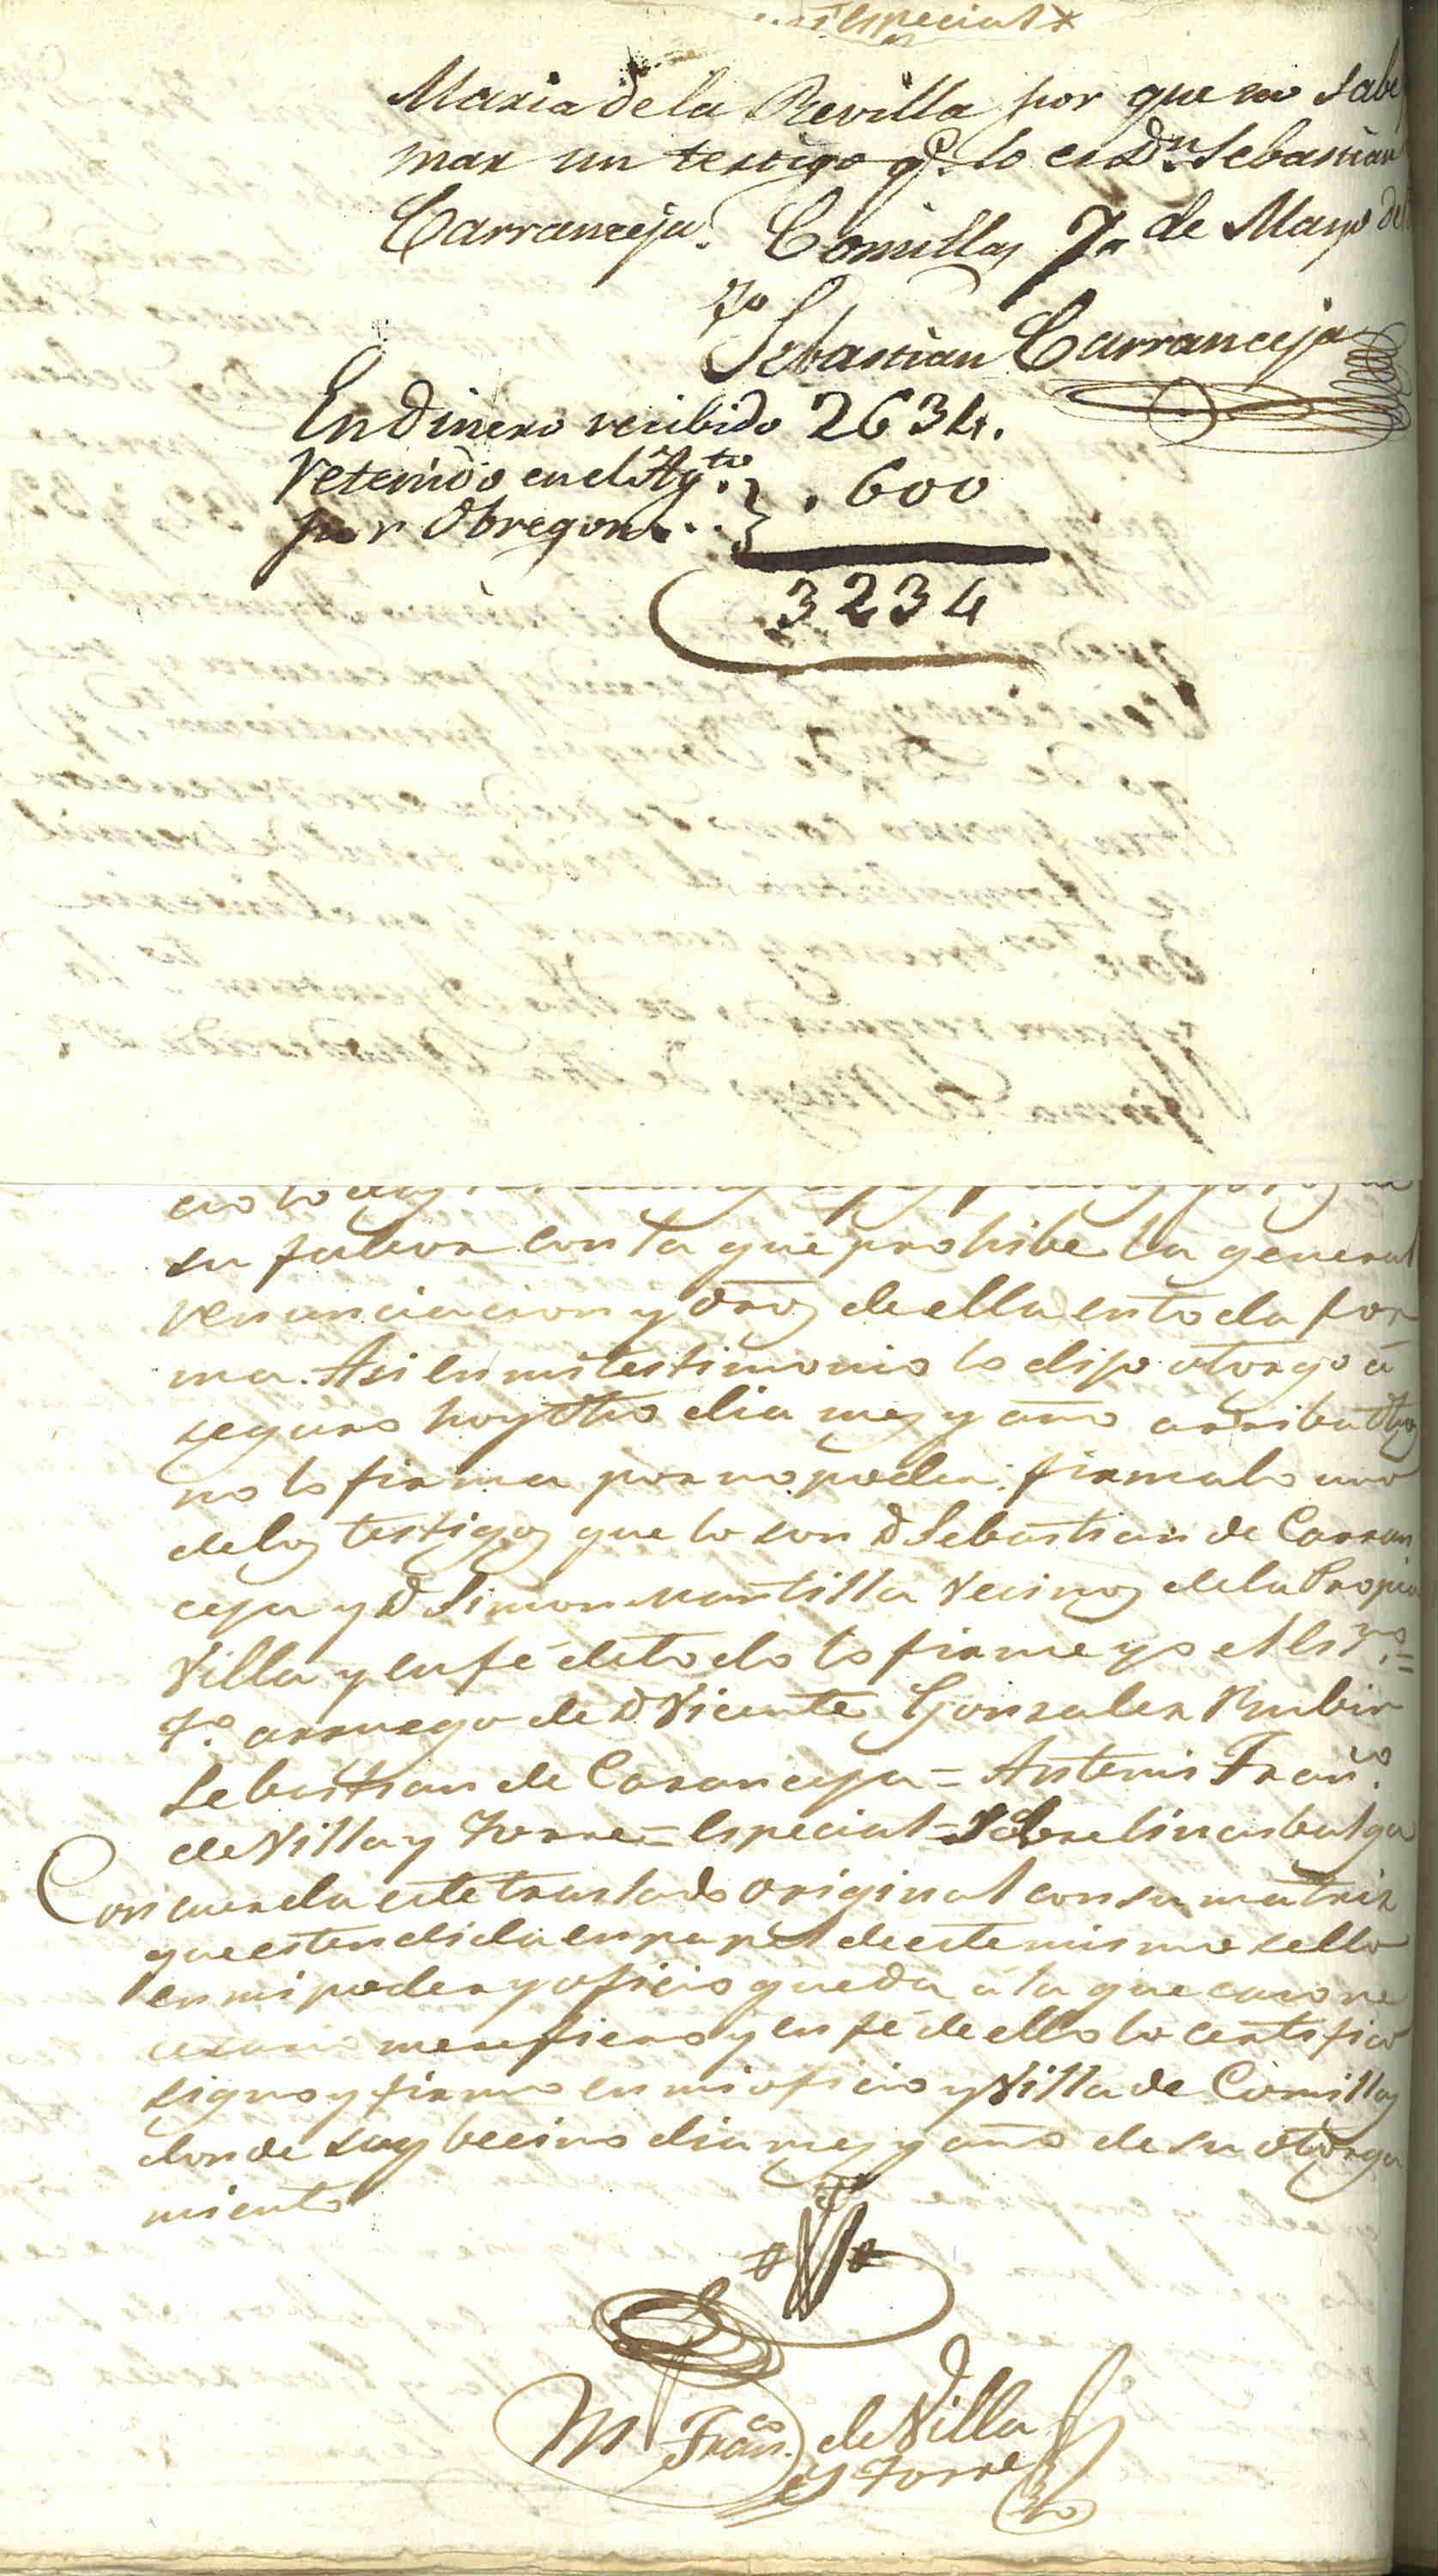 especial
Maria de la Revilla por que no sabe
mar un testigo qe. lo es Dn. Sebastian
Carranceja. Comillas 7 de Mayo de
To
Sebastian Carranceja
En dinero recibido 2634.
retenido en el Aytto. } . 600
por Obregon . . }
3234
su favor con la que prohibe la general
renunciacion y dros de ella en toda for
ma. Asi en mi testimonio lo dijo otorgo á
seguro hoy dho dia mes y año arriba dhos
no lo firma por no poder: firmalo uno
de los testigos que lo son D Sebastian de Carran
ceja y D Simon Mantilla Vecinos de la Propia
Villa y en fé de todo lo firme yo el Essno. =
To. a ruego de D Vicente Gonzalez Rubin
Sebastian de Caranceja = Antemi Franco.
de Villa y Torre = Especial = Sobrelineasbalga
Concuerda este traslado original con su matriz
que estendida en papel de este mismo sello
en mi poder y oficio queda á la que caso ne
cesario me refiero y en fé de ello lo certifico
signo y firmo en mi oficio y Villa de Comillas
donde soy becino dia mes y año de su otorga
miento
Franco. de Villa
y Torre